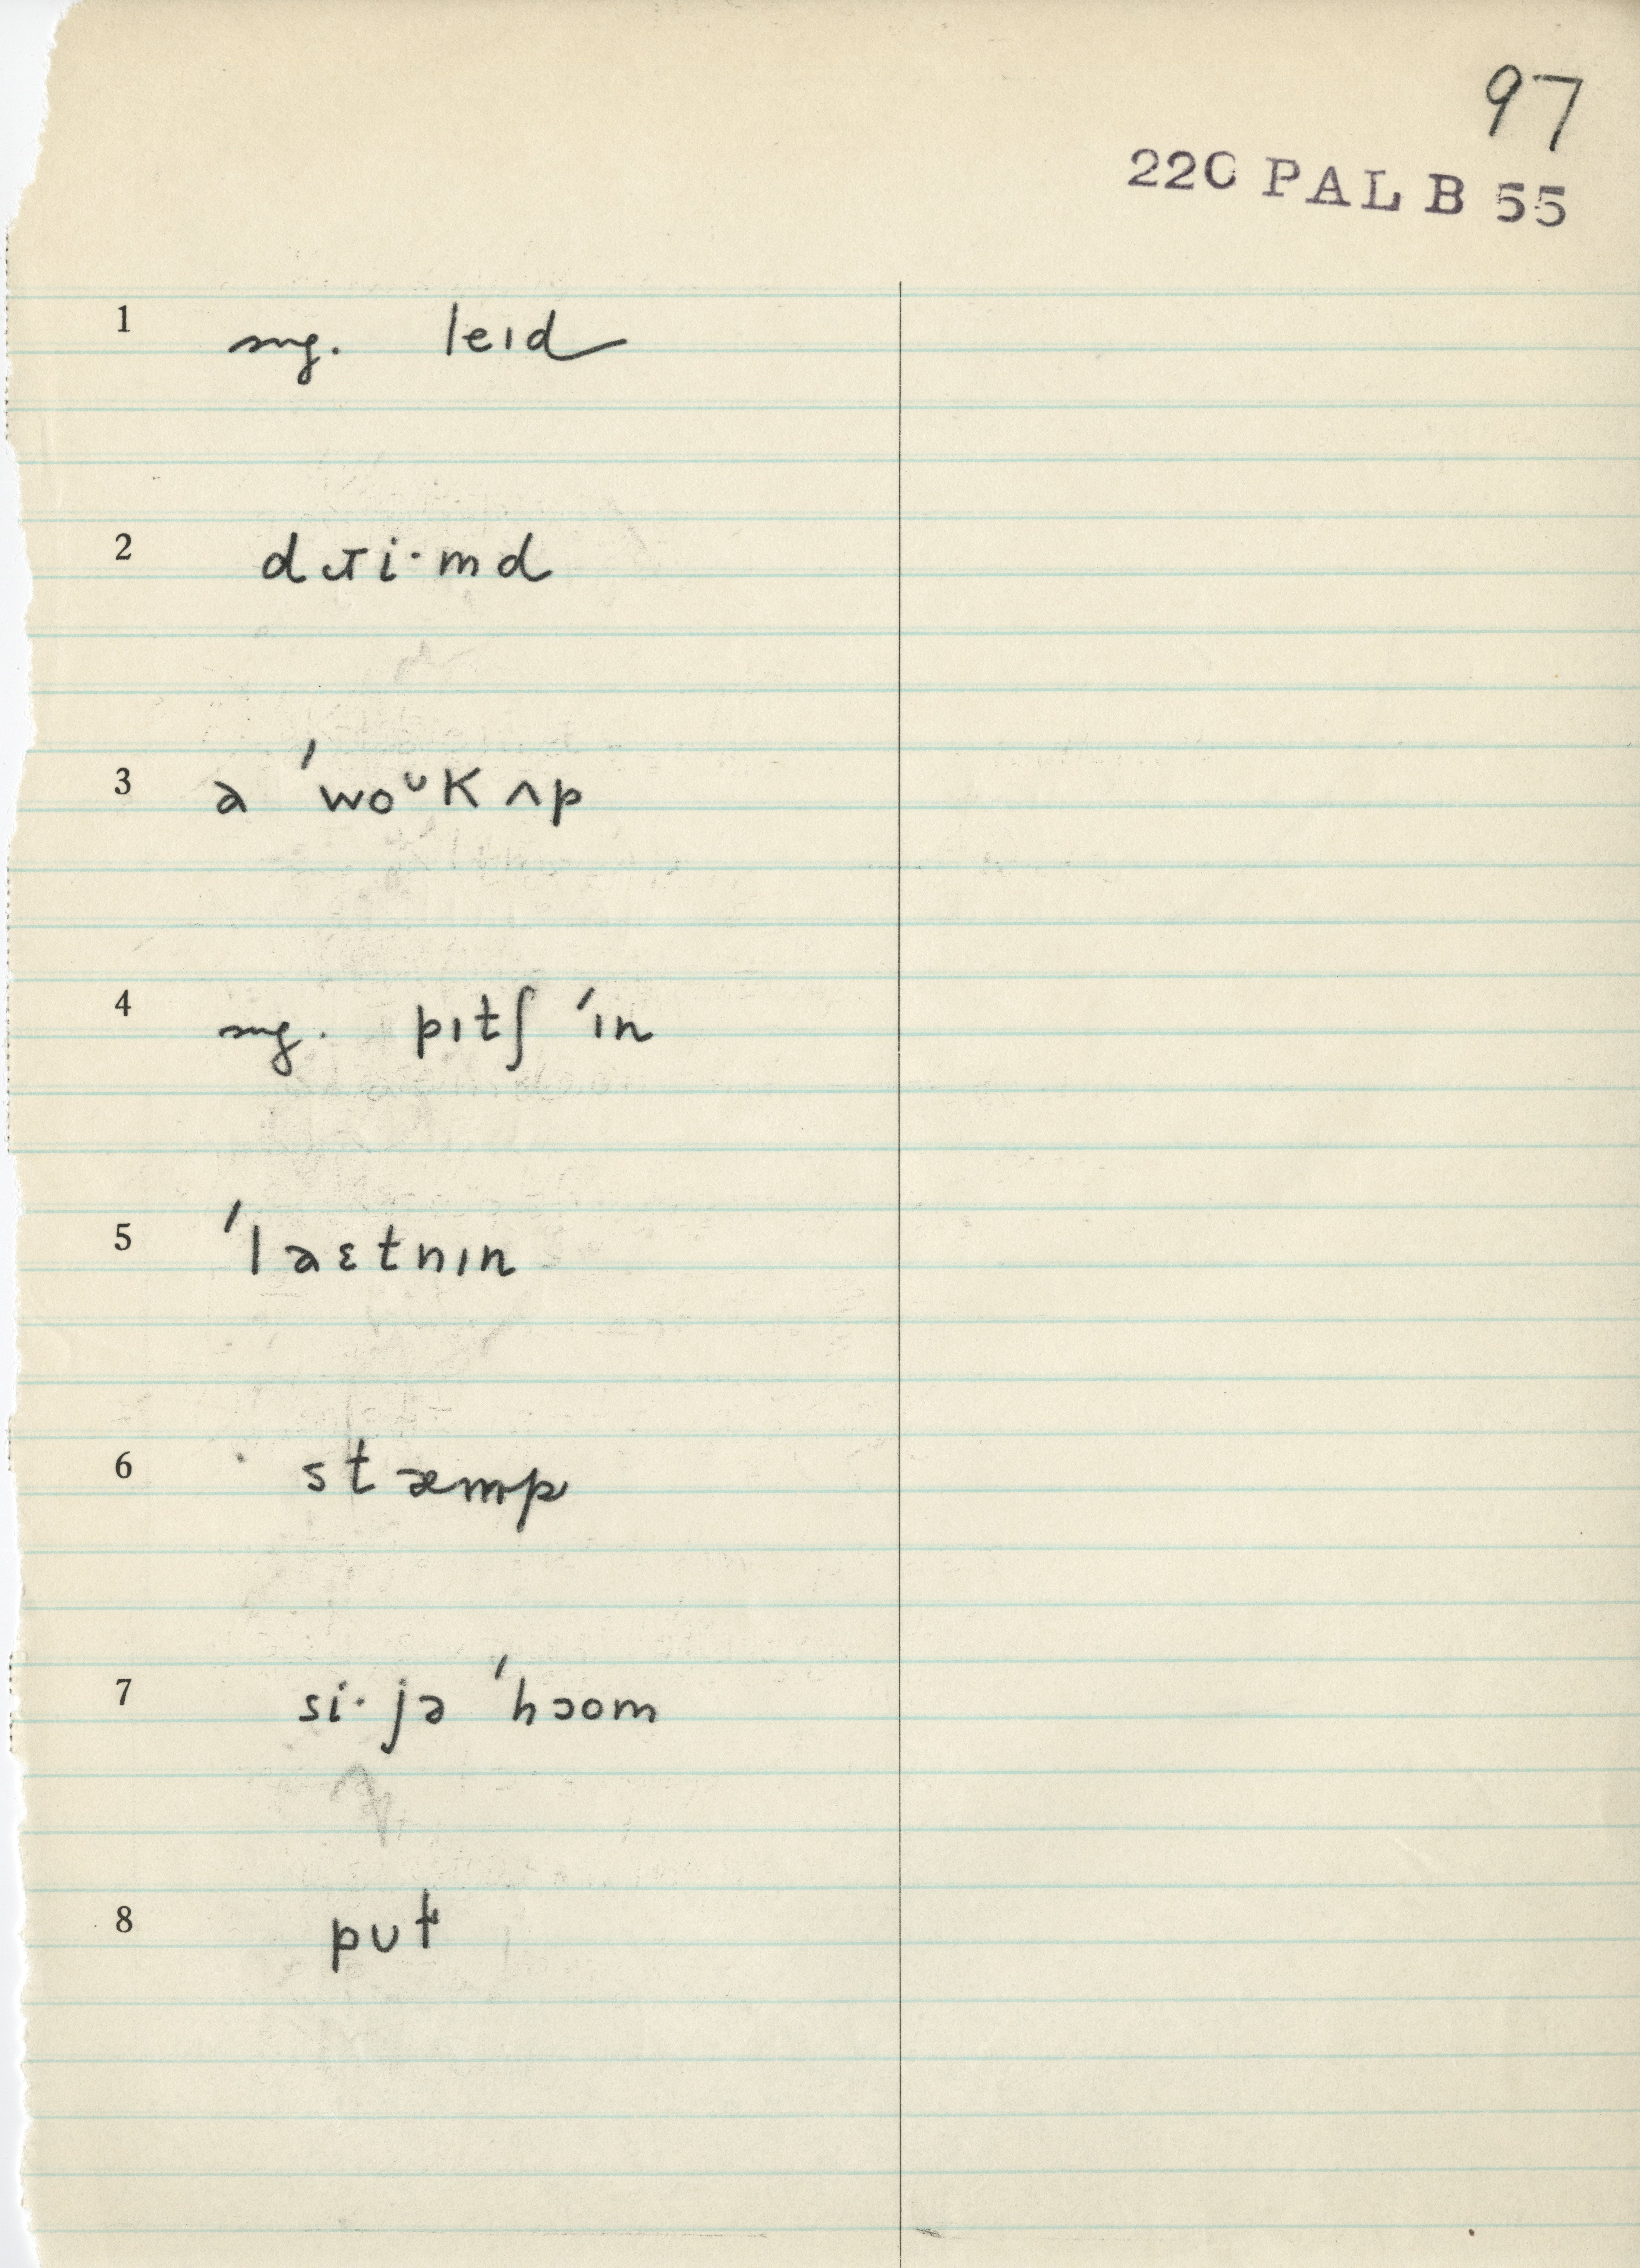 97
220 PAL B 55
1 sug. leɪd
2 dɹi·md
3 a ˈwoᴜK ʌp
4 sug. pɪtʃ ˈɪn
5 ˈlaɛtnɪn
6 stæmp
7 si·jə ˈhɔom
8 pʊt